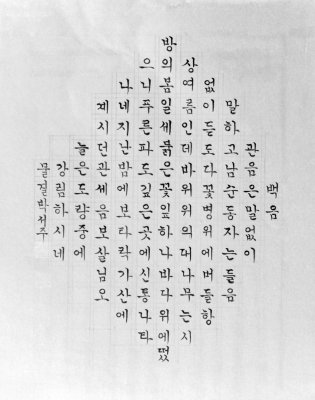 백음
관음은말없이
말하고남순동자는들음
없이듣도다꽃병위에버들항
상여름인데바위위의대나무는시
방의봄일세붉은꽃잎하나바다위에떴
으니푸른파도깊은곳에신통나타
나네지난밤에보타락가산에
계시던관세음보살님오
늘은도량중에
강림하시네
물결박서주